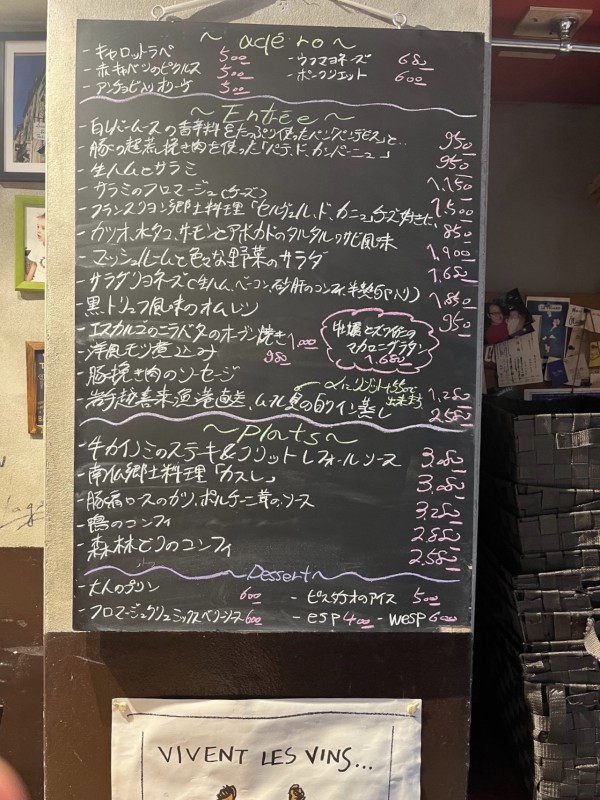 ~ apéro ~
- キャロットラペ 500 - ウフマヨネーズ 680
- 赤キャベツのピクルス 500 - ポークリエット 600
- アンチョビ入りオリーヴ 500
~ Entrée ~
- 白レバームースの香辛料をたっぷり使ったパン「パンデピス」と.. 950
- 豚の超荒挽き肉を使った「パテ、ド、カンパーニュ」 950
- 生ハムとサラミ 1,150
- サラミのフロマージュ(チーズ) 1,500
- フランスリヨン郷土料理「セルヴェル、ド、カニュ」チーズ好きに、 850
- カツオ、水タコ、サーモンとアボカドのタルタル ワサビ風味 1,900
- マッシュルームと色々な野菜のサラダ 1,680
- サラダリヨネーズ(生ハム、ベーコン、砂肝のコンフィ、半熟卵入り) 1,850
- 黒トリュフ風味のオムレツ 950
- エスカルゴのニラバタのオーブン焼き 1,000
- 洋風モツ煮込み 980
のマカロニグラタン 1,680
- 豚挽き肉のソーセージ 1,280
越喜来漁港直送、ムール貝の白ワイン蒸し 2,580
出来ます
~ Plats ~
- 牛カイノミのステーキ&フリット レフォールソース 3,080
- 南仏郷土料理「カスレ」 3,080
- 豚肩ロースのカツ、ポルチーニ茸のソース 3,280
- 鴨のコンフィ 2,880
- 森林どりのコンフィ 2,580
~ Dessert ~
- 大人のプリン 600 - ピスタチオのアイス 500
- フロマージュクリュ ミックスベリーソース 600 - esp 400 - wesp 600
VIVENT LES VINS...